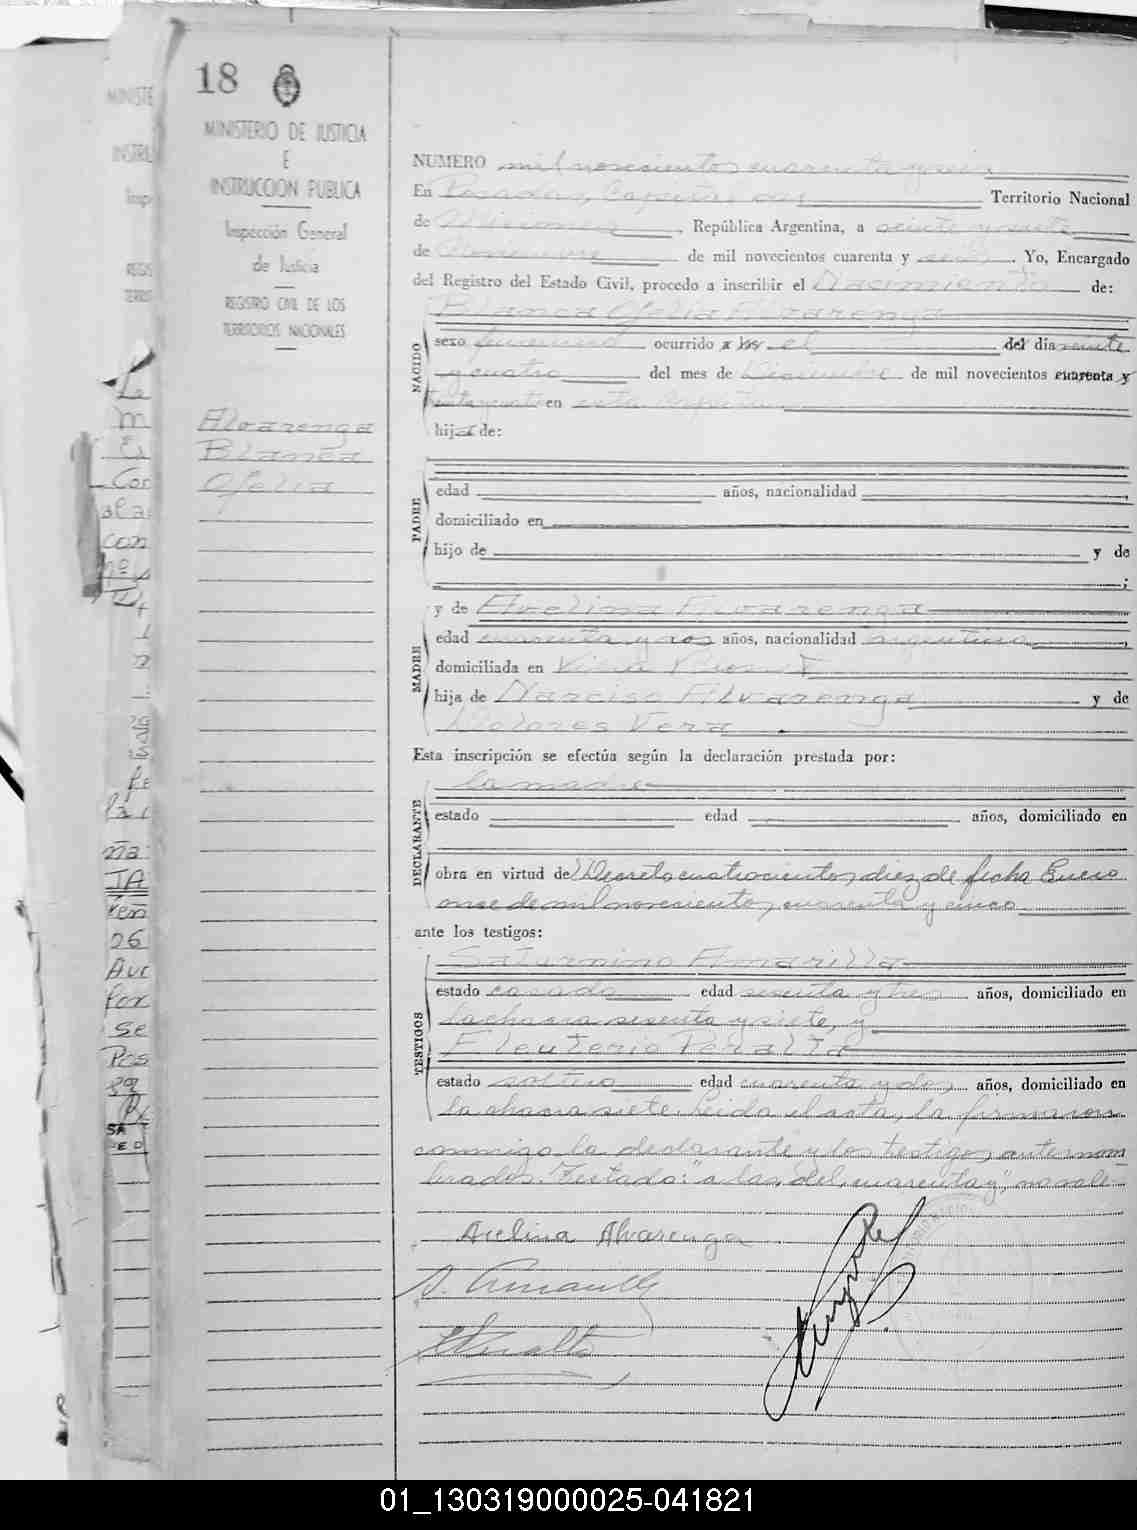 18
MINISTERIO DE JUSTICIA
E
INSTRUCCION PUBLICA
Inspección General
de Justicia
REGISTRO CIVIL DE LOS
TERRITORIOS NACIONALES
Alvarenga
Blanca
Ofelia
NUMERO mil novecientos cuarenta y
En Posadas, Capital del Territorio Nacional
de Misiones, República Argentina, a veinte y siete
de Noviembre de mil novecientos cuarenta y seis. Yo, Encargado
del Registro del Estado Civil, procedo a inscribir el Nacimiento de:
Blanca Ofelia Alvarenga
NACIDO
sexo femenino ocurrido a las el del día veinte
y cuatro del mes de Diciembre de mil novecientos cuarenta y
en esta Capital
hija de:
PADRE
edad años, nacionalidad ,
domiciliado en
hijo de y de
;
y de Avelina Alvarenga
MADRE
edad cuarenta y dos años, nacionalidad argentina,
domiciliada en Villa
hija de Narciso Alvarenga y de
Dolores Vera
Esta inscripción se efectúa según la declaración prestada por:
la madre
DECLARANTE
estado edad años, domiciliado en
obra en virtud de Decreto cuatrocientos diez de fecha Enero
once de mil novecientos cuarenta y cinco
ante los testigos:
Saturnino Amarilla
TESTIGOS
estado casado edad sesenta y tres años, domiciliado en
la chacra sesenta y siete, y
Eleuterio Peralta
estado soltero edad cuarenta y dos, años, domiciliado en
la chacra siete. Leida el acta, la firmaron
conmigo la declarante y los testigos antenom
brados. Testado: "a las, del, cuarenta y", no vale-
Avelina Alvarenga
S. Amarilla
E Peralta
01_130319000025-041821